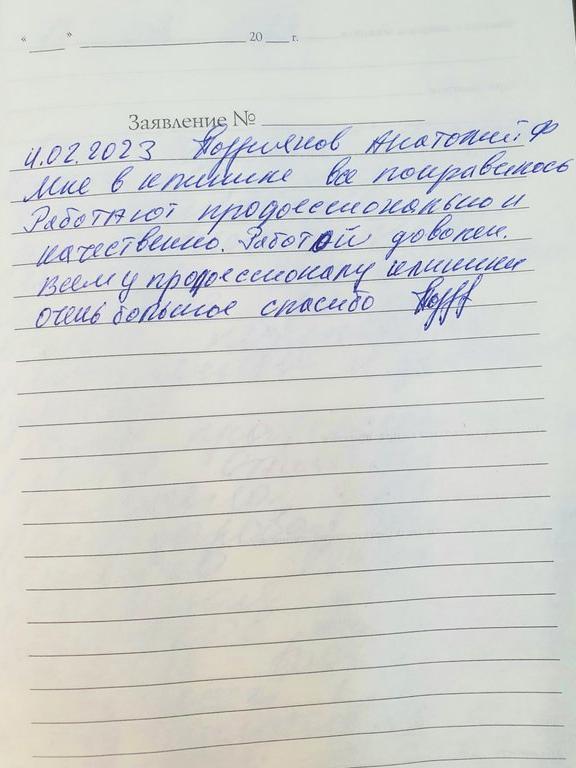 « ___ » ______________ 20 ___ г.
Заявление № ______________
11.02.2023 Анатолий Ф
Мне в клинике все понравилось
Работают продессионально и
качественно. Работой доволен.
Всему продессионалу клиники
очень большое спасибо